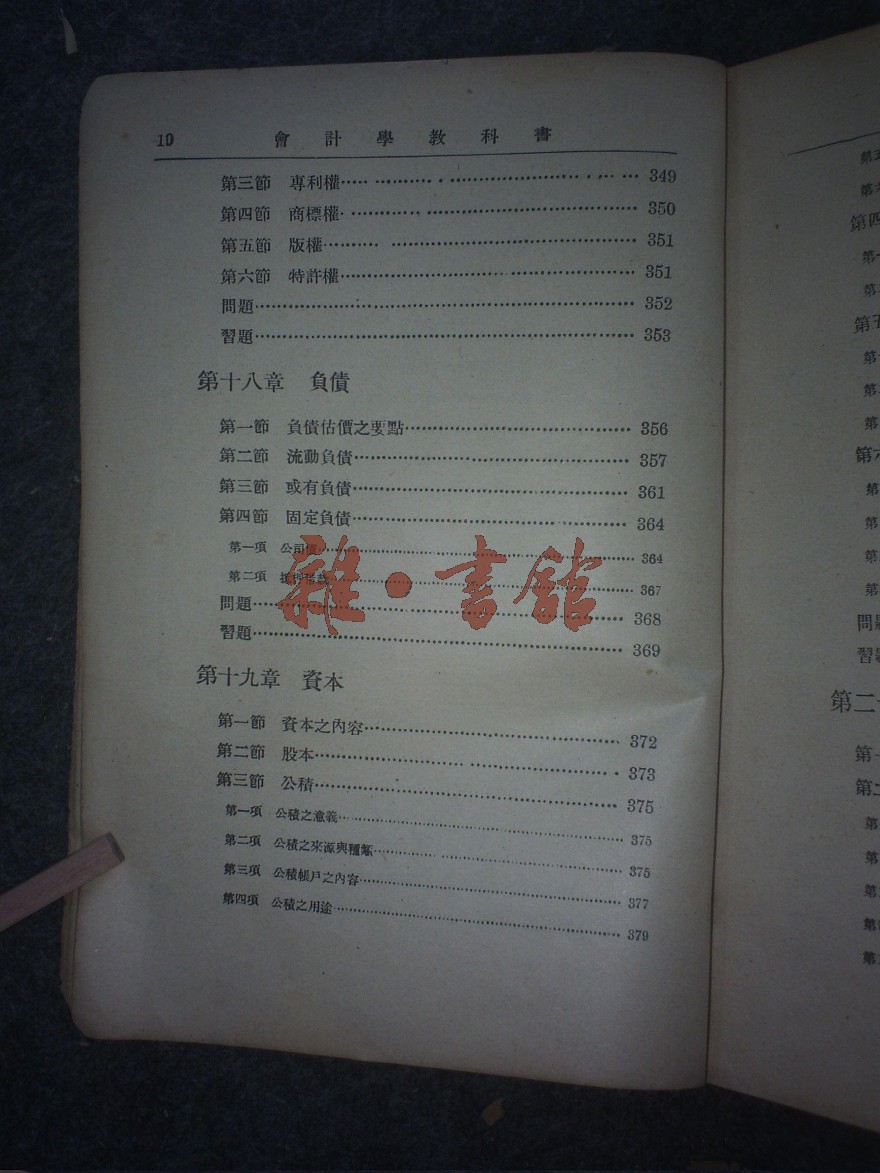 10 會計學教科書
第三節 專利權 349
第四節 商標權 350
第五節 版權 351
第六節 特許權 351
問題 352
習題 353
第十八章 負債
第一節 負債估價之要點 356
第二節 流動負債 357
第三節 或有負債 361
第四節 固定負債 364
第一項 公司債 364
第二項 367
問題 368
習題 369
雜·書館
第十九章 資本
第一節 資本之內容 372
第二節 股本 373
第三節 公積 375
第一項 公積之意義 375
第二項 公積之來源與種類 375
第三項 公積帳戶之內容 377
第四項 公積之用途 379
第四
第
第
第五
第
第
第
第六
第
第
第
第
問題
習題
第二
第一
第二
第
第
第
第
第